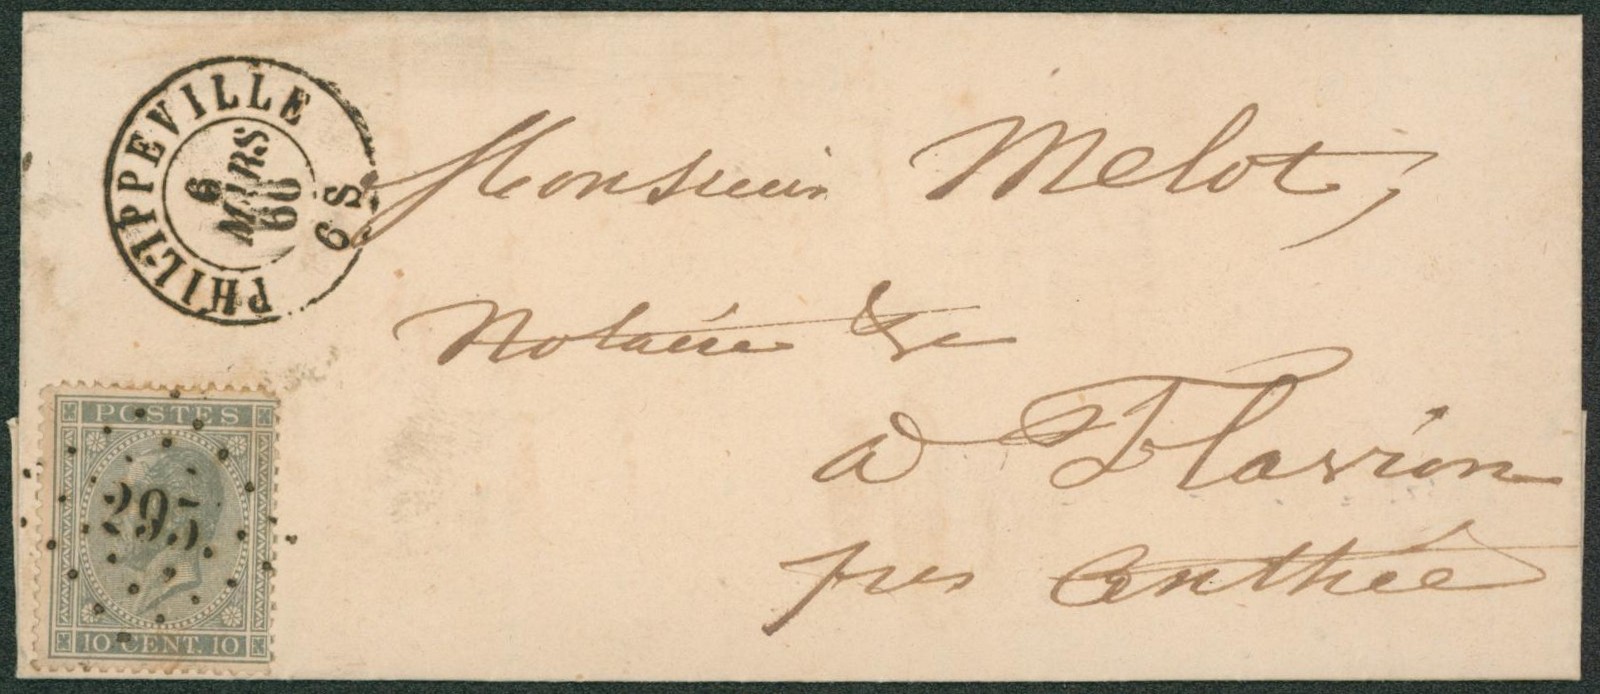 PHILIPPEVILLE
6
MARS
66
6 S
Monsieur Melot,
Notaire &c
à Flavion
près Anthée
POSTES
295
10 CENT. 10